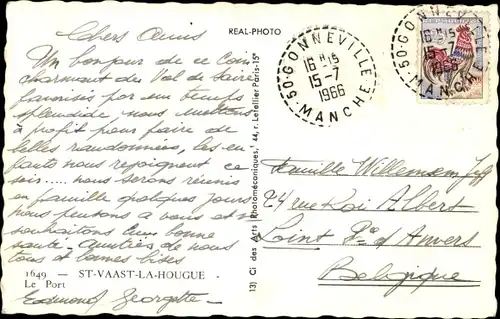 REAL-PHOTO
Chers Amis
Un bonjour de ce coin
charmant des Val de Saire
favorisés par un temps
splendide, nous mettons
à profit pour faire de
belles randonnées, les en-
fants nous rejoignent ce
soir.... nous serons réunis
en famille quelques jours
nous pensons à vous et
souhaitons bonne
santé. Amitiés de nous
tous et bonnes bises
1649 - ST-VAAST-LA-HOUGUE
Le Port
Edmond Georgette
13) Ci des Arts Photomécaniques, 44, r. Letellier Paris-15e
50-GONNEVILLE
16H15
15-7
1966
MANCHE
50-GONNEVILLE
16H15
15-7
1966
MANCHE
Famille Willemsem Jef
24 rue Roi Albert
d'Anvers
Belgique